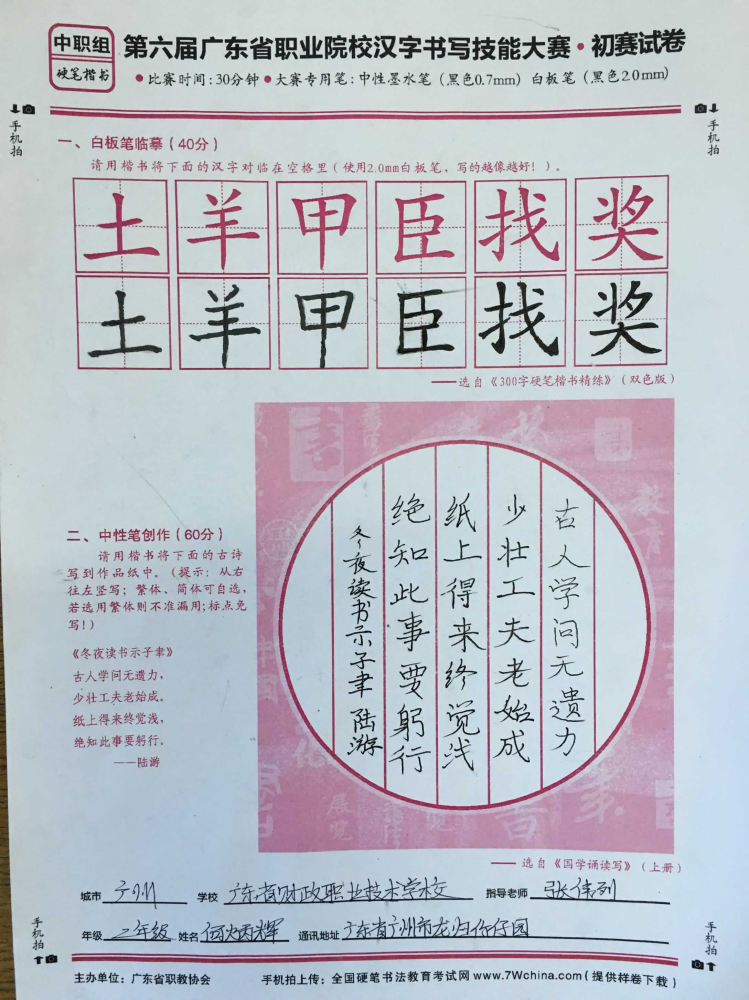 中职组
硬笔楷书
第六届广东省职业院校汉字书写技能大赛·初赛试卷
●比赛时间:30分钟●大赛专用笔:中性墨水笔(黑色0.7mm) 白板笔(黑色2.0mm)
手机拍
手机拍
一、白板笔临摹(40分)
请用楷书将下面的汉字对临在空格里(使用2.0mm白板笔,写的越像越好!)。
土羊甲臣找奖
土羊甲臣找奖
——选自《300字硬笔楷书精练》(双色版)
二、中性笔创作(60分)
请用楷书将下面的古诗
写到作品纸中。(提示:从右
往左竖写;繁体、简体可自选,
若选用繁体则不准漏用;标点免
写!)
《冬夜读书示子聿》
古人学问无遗力,
少壮工夫老始成。
纸上得来终觉浅,
绝知此事要躬行。
——陆游
古人学问无遗力
少壮工夫老始成
纸上得来终觉浅
绝知此事要躬行
冬夜读书示子聿 陆游
教育
中国
展览
——选自《国学诵读写》(上册)
城市 广州 学校 广东省财政职业技术学校 指导老师 张伟列
年级 二年级 姓名 何炳辉 通讯地址 广东省广州市龙归
手机拍
手机拍
主办单位:广东省职教协会 手机拍上传:全国硬笔书法教育考试网 www.7Wchina.com(提供样卷下载)